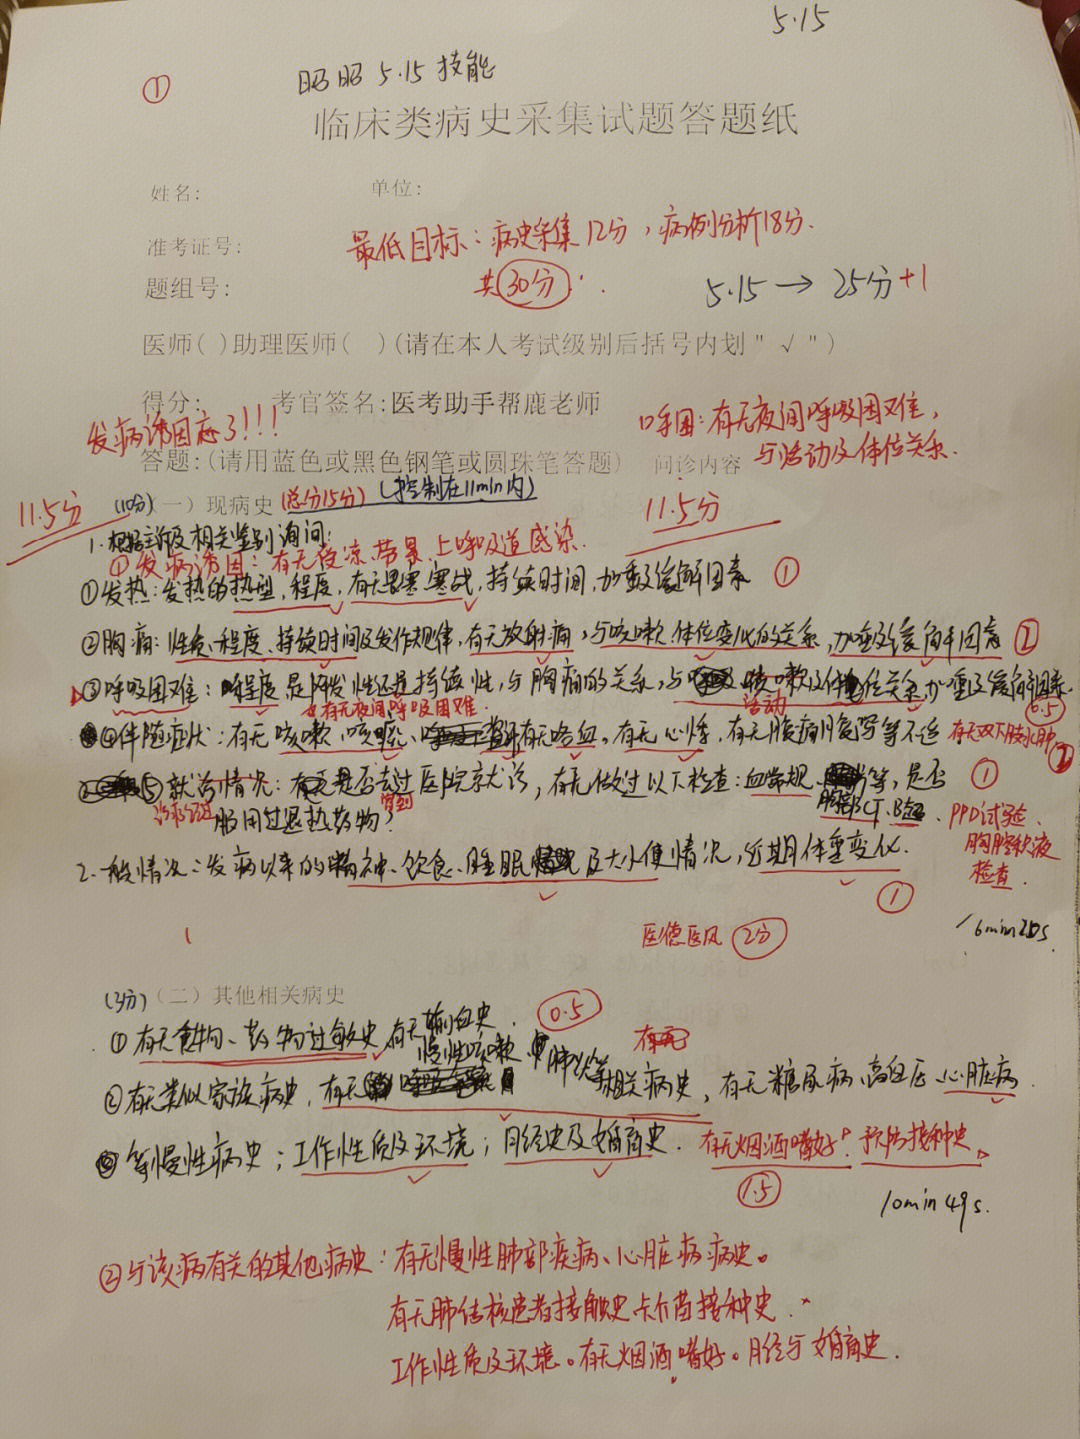 5.15
①
昭昭 5.15 技能
临床类病史采集试题答题纸
姓名:
单位:
准考证号:
最低目标:病史采集12分,病例分析18分.
题组号:
共30分.
5.15→25分+1
医师( )助理医师( )(请在本人考试级别后括号内划"√")
得分: 考官签名:医考助手帮鹿老师
发病诱因忘了!!!
呼困:有无夜间呼吸困难,
与活动及体位关系.
答题:(请用蓝色或黑色钢笔或圆珠笔答题) 问诊内容
11.5分
(10分)(一)现病史(总分15分)(控制在11min内)
11.5分
1.根据主诉及相关鉴别询问:
①发病诱因:有无受凉、劳累、上呼吸道感染.
①发热:发热的热型,程度,有无畏寒寒战,持续时间,加重及缓解因素 ①
②胸痛:性质、程度、持续时间及发作规律,有无放射痛,与咳嗽、体位变化的关系,加重及缓解因素 ②
③呼吸困难:程度是阵发性还是持续性,与胸痛的关系,与咳嗽及体位关系,加重及缓解因素.
活动
有无夜间呼吸困难.
0.5
④伴随症状:有无咳嗽、咳痰、有无咯血,有无心悸,有无腹痛腹泻等不适 有无双下肢水肿
⑤就诊情况:是否去过医院就诊,有无做过以下检查:血常规、等,是否 ①
胸部CT、B超、PPD试验、
诊疗经过
服用过退热药物?
胸腔积液
检查.
2.一般情况:发病以来的精神、饮食、睡眠及大小便情况,近期体重变化.
①
医德医风 2分
6min20s.
(3分)(二)其他相关病史
0.5
①有无食物、药物过敏史,有无输血史.
慢性咳嗽、肺炎等
有无
②有无类似家族病史,有无相关病史,有无糖尿病、高血压、心脏病
等慢性病史;工作性质及环境;月经史及婚育史. 有无烟酒嗜好?预防接种史
1.5
10min49s.
②与该病有关的其他病史:有无慢性肺部疾病、心脏病病史。
有无肺结核患者接触史、卡介苗接种史.
工作性质及环境。有无烟酒嗜好。月经与婚育史.